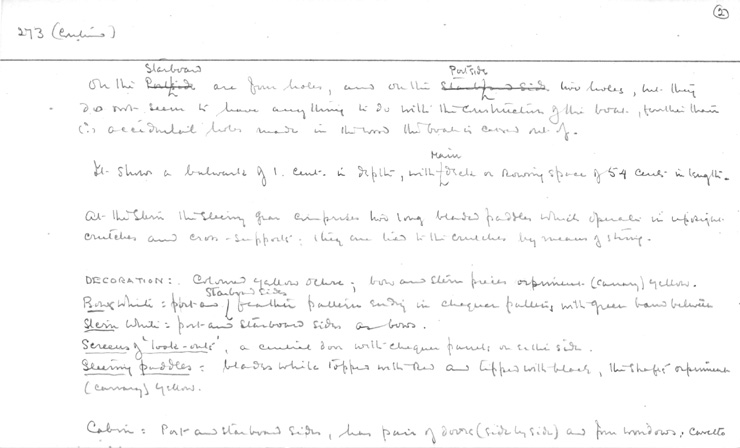 2
273 (Continued)
Starboard Portside
On the Portside are four holes, and on the Starboard Side two holes, but they
do not seem to have anything to do with the construction of the boat, further than
as accidental holes made in the wood the boat is carved out of.
Main
It shows a bulwark of 1. cent. in depth, with deck or rowing space of 54 cents in length.
At the Stern the Steering gear comprises two long bladed paddles which operate in upright
crutches and cross-supports: they are tied to the crutches by means of string.
DECORATION: Coloured yellow ochre; bow and stern pieces orpiment (canary) yellow.
Starboard Sides
Bow White: port and feather pattern ending in chequer pattern, with green band between
Stern White: port and Starboard sides as bows.
Screens of 'look-outs', a central door with chequer panels on either side.
Steering paddles: blades white topped with red and tipped with black, the shafts orpiment
(canary) yellow.
Cabin: Port and starboard sides, has pair of doors (side by side) and four windows; cavetto